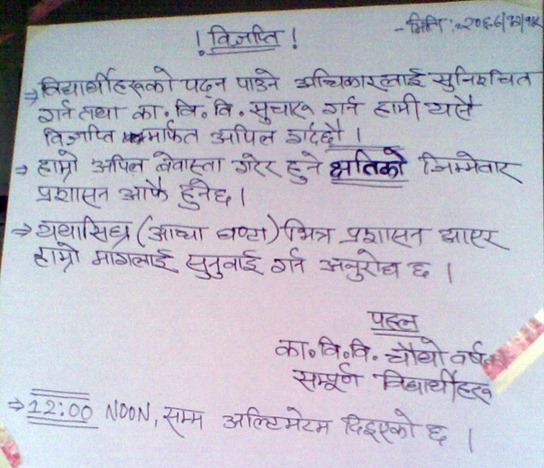 - मिति :- २०६८/१२/१५
! विज्ञप्ति !
⇒ विद्यार्थीहरूको पढ्न पाउने अधिकारलाई सुनिश्चित
गर्न तथा का. वि. वि. सुचारू गर्न हामी यसै
विज्ञप्ति मार्फत अपिल गर्दछौं ।
⇒ हाम्रो अपिल बेवास्ता गरेर हुने क्षतिको जिम्मेवार
प्रशासन आफै हुनेछ ।
⇒ यथासिघ्र (आधा घण्टा) भित्र प्रशासन आएर
हाम्रो मागलाई सुनुवाई गर्न अनुरोध छ ।
का. वि. वि. चौथो वर्षका
सम्पूर्ण विद्यार्थीहरू
⇒ 12:00 NOON, सम्म अल्टिमेटम दिइएको छ ।